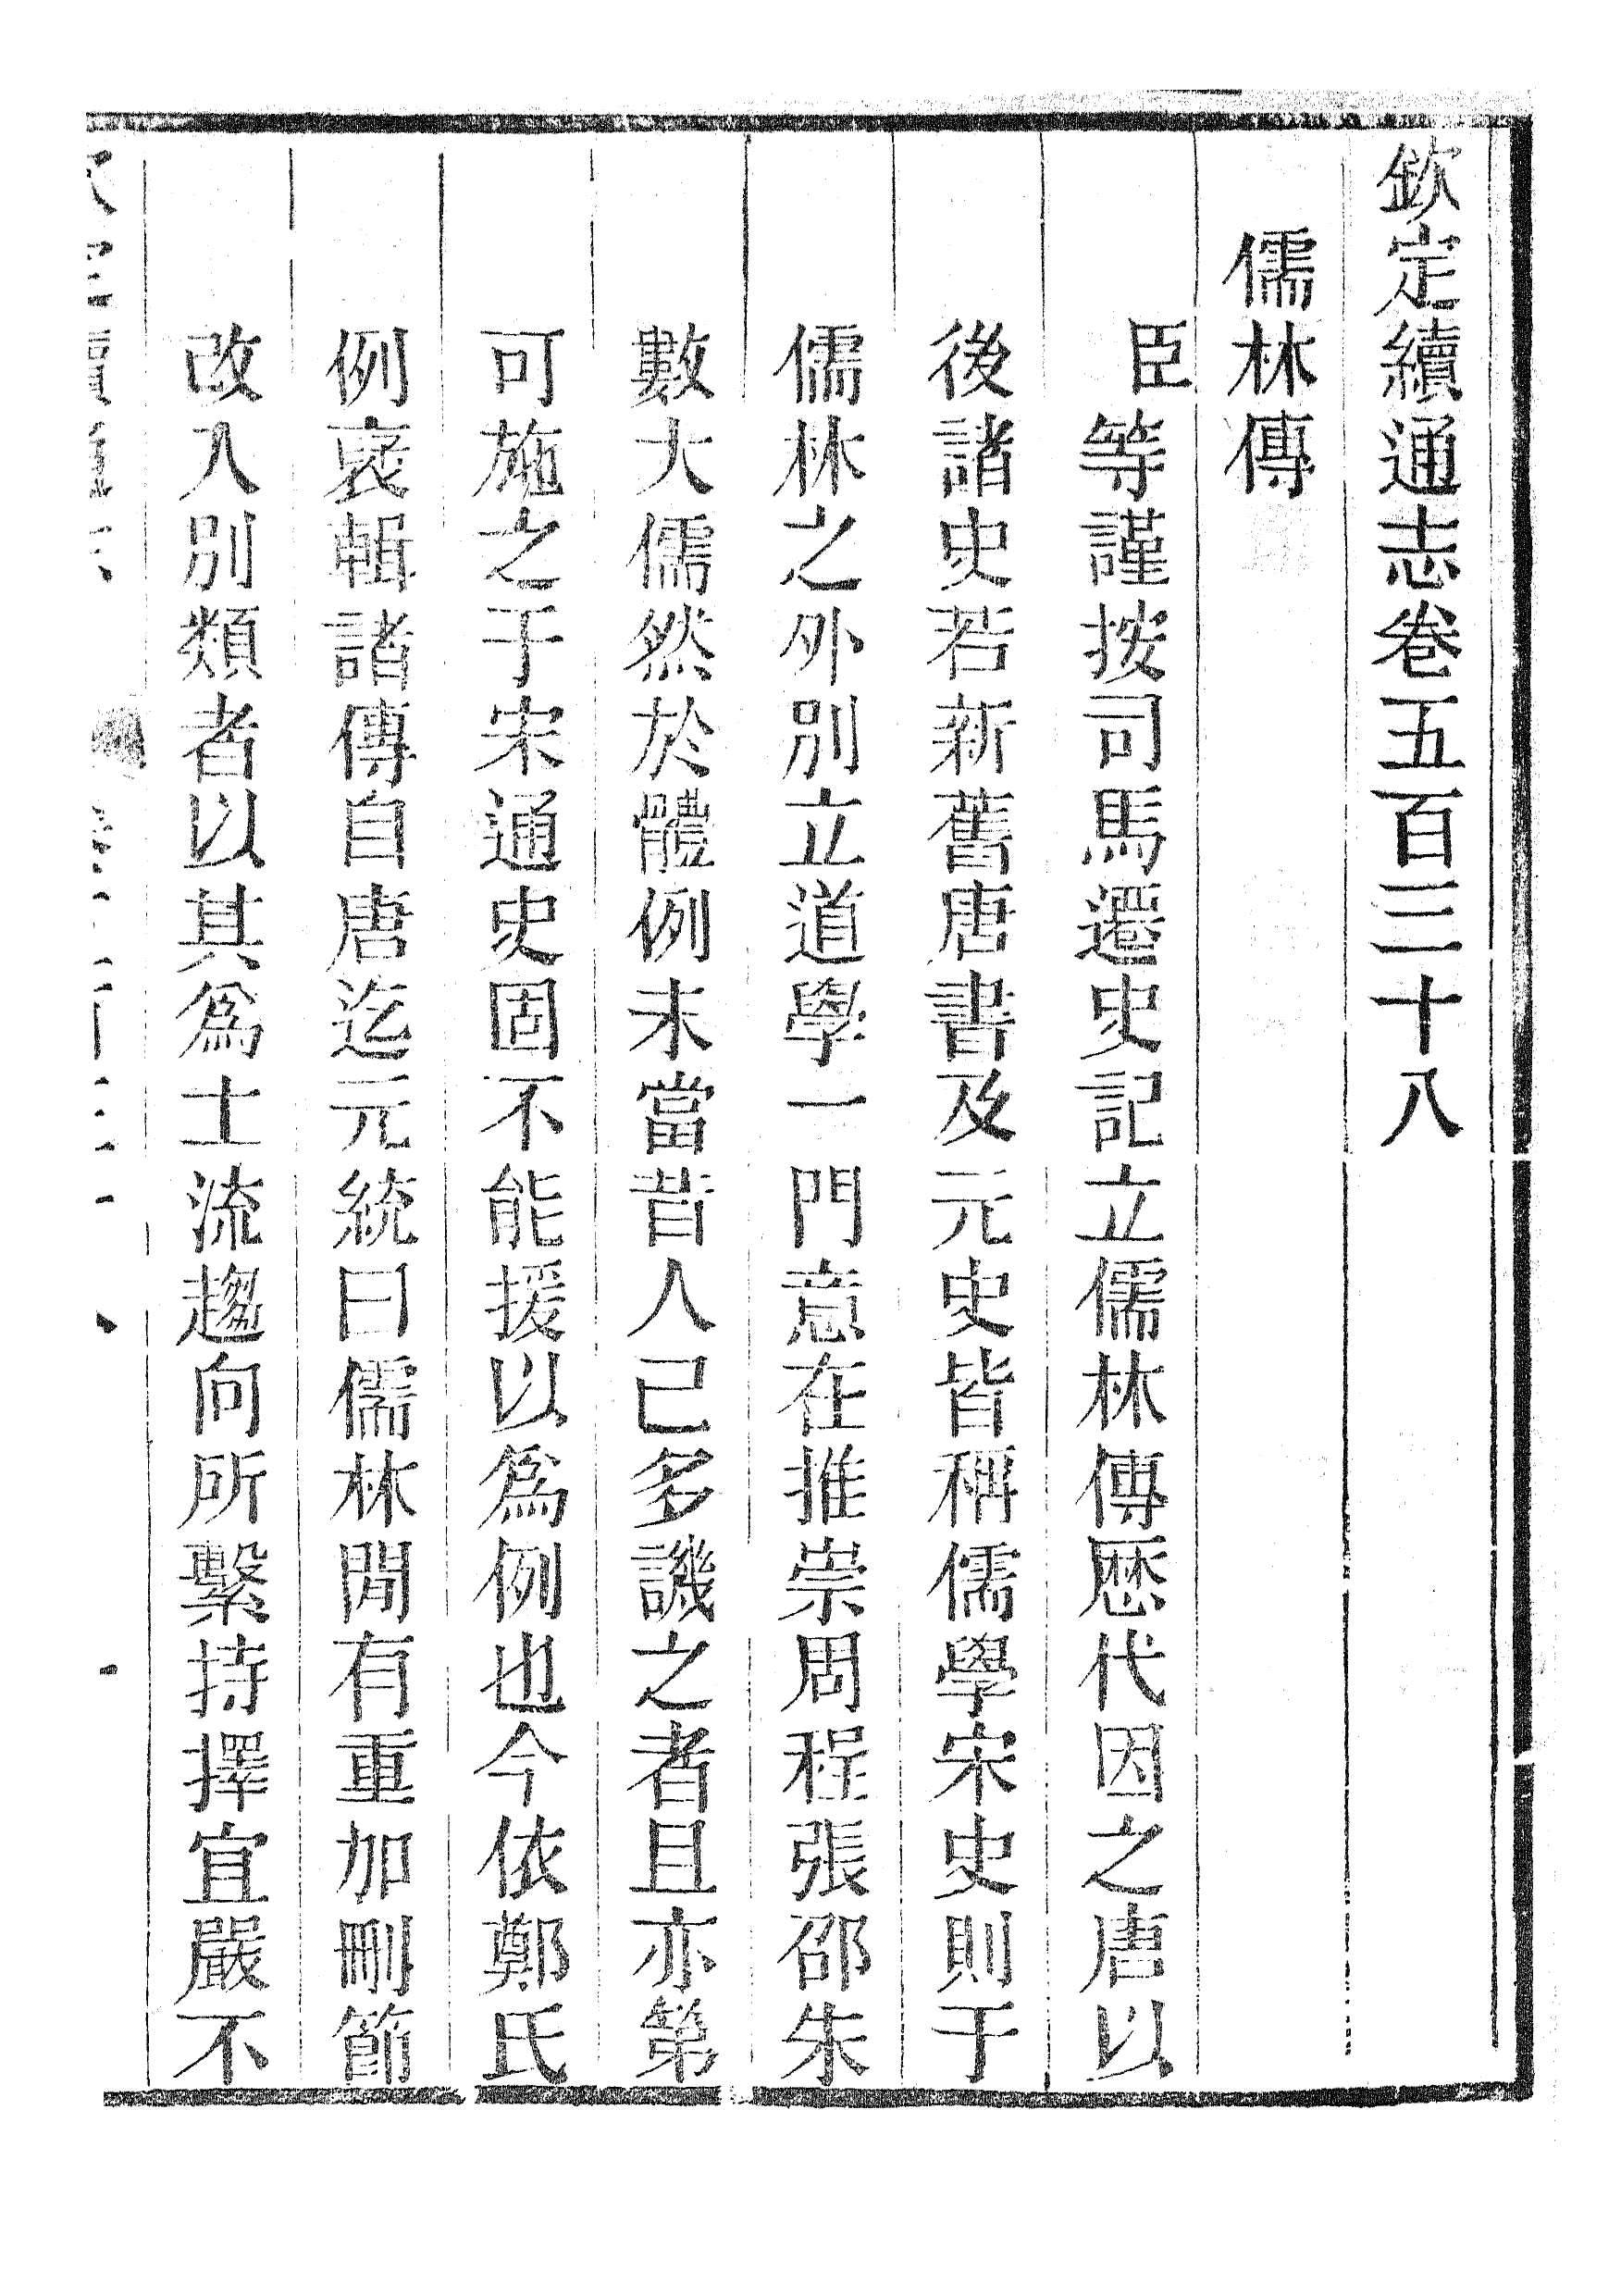 欽定續通志卷五百三十八
儒林傳
臣等謹按司馬遷史記立儒林傳歷代因之唐以
後諸史若新舊唐書及元史皆稱儒學宋史則于
儒林之外別立道學一門意在推崇周程張邵朱
數大儒然於體例未當昔人已多譏之者且亦第
可施之于宋通史固不能援以爲例也今依鄭氏
例裒輯諸傳自唐迄元統曰儒林閒有重加刪節
改入別類者以其爲士流趨向所繫持擇宜嚴不